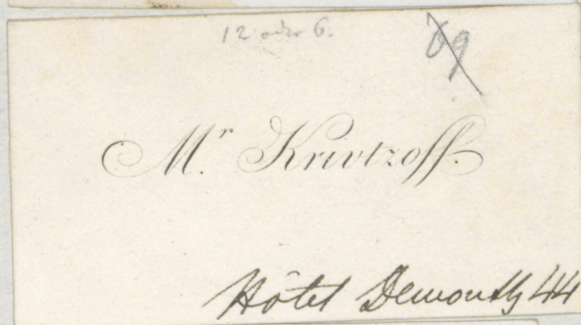 12 6.
69
Mr. Krivtzoff.
Hôtel Demouth 44